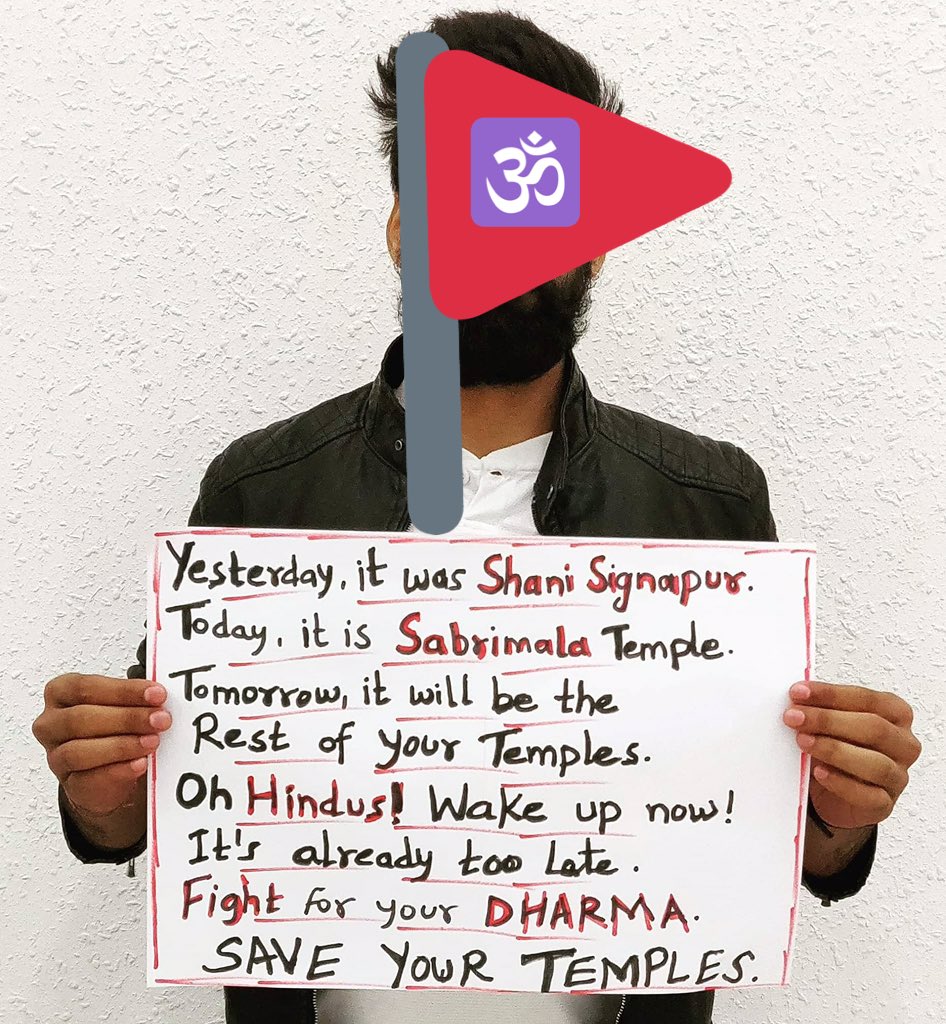 ॐ
Yesterday, it was Shani Signapur.
Today, it is Sabrimala Temple.
Tomorrow, it will be the
Rest of your Temples.
Oh Hindus! Wake up now!
It's already too Late.
Fight for your DHARMA.
SAVE YOUR TEMPLES.